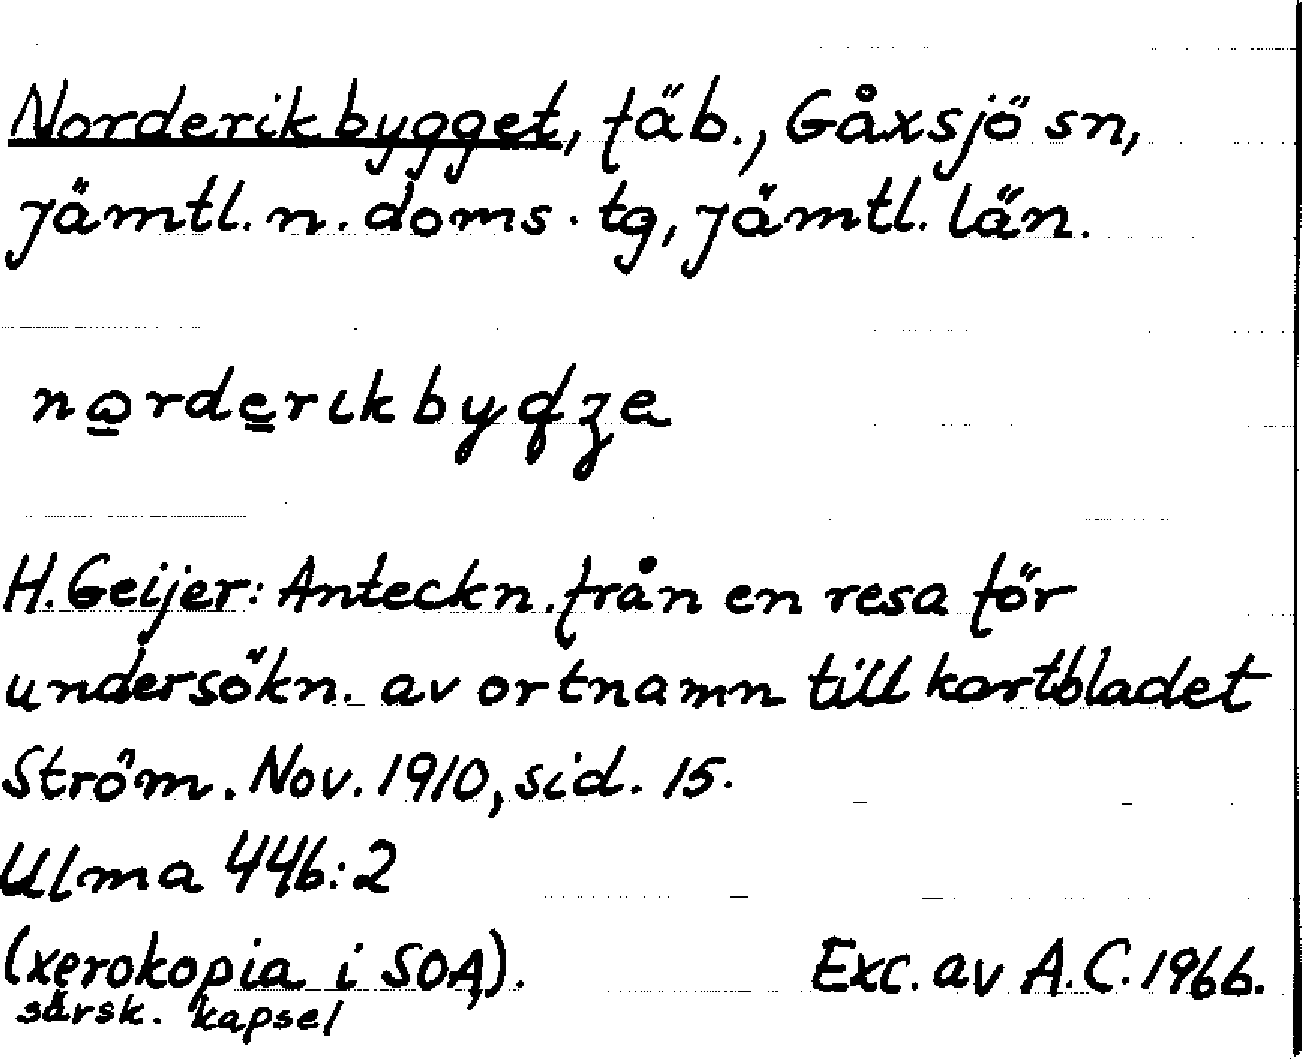 Norderikbygget, fäb., Gåxsjö sn,
Jämtl. n. doms. tg, Jämtl. län.
norderikbygʒe
H. Geijer: Anteckn. från en resa för
undersökn. av ortnamn till kartbladet
Ström. Nov. 1910, sid. 15.
Ulma 446:2
(xerokopia i SOA). Exc. av A.C. 1966.
särsk. kapsel